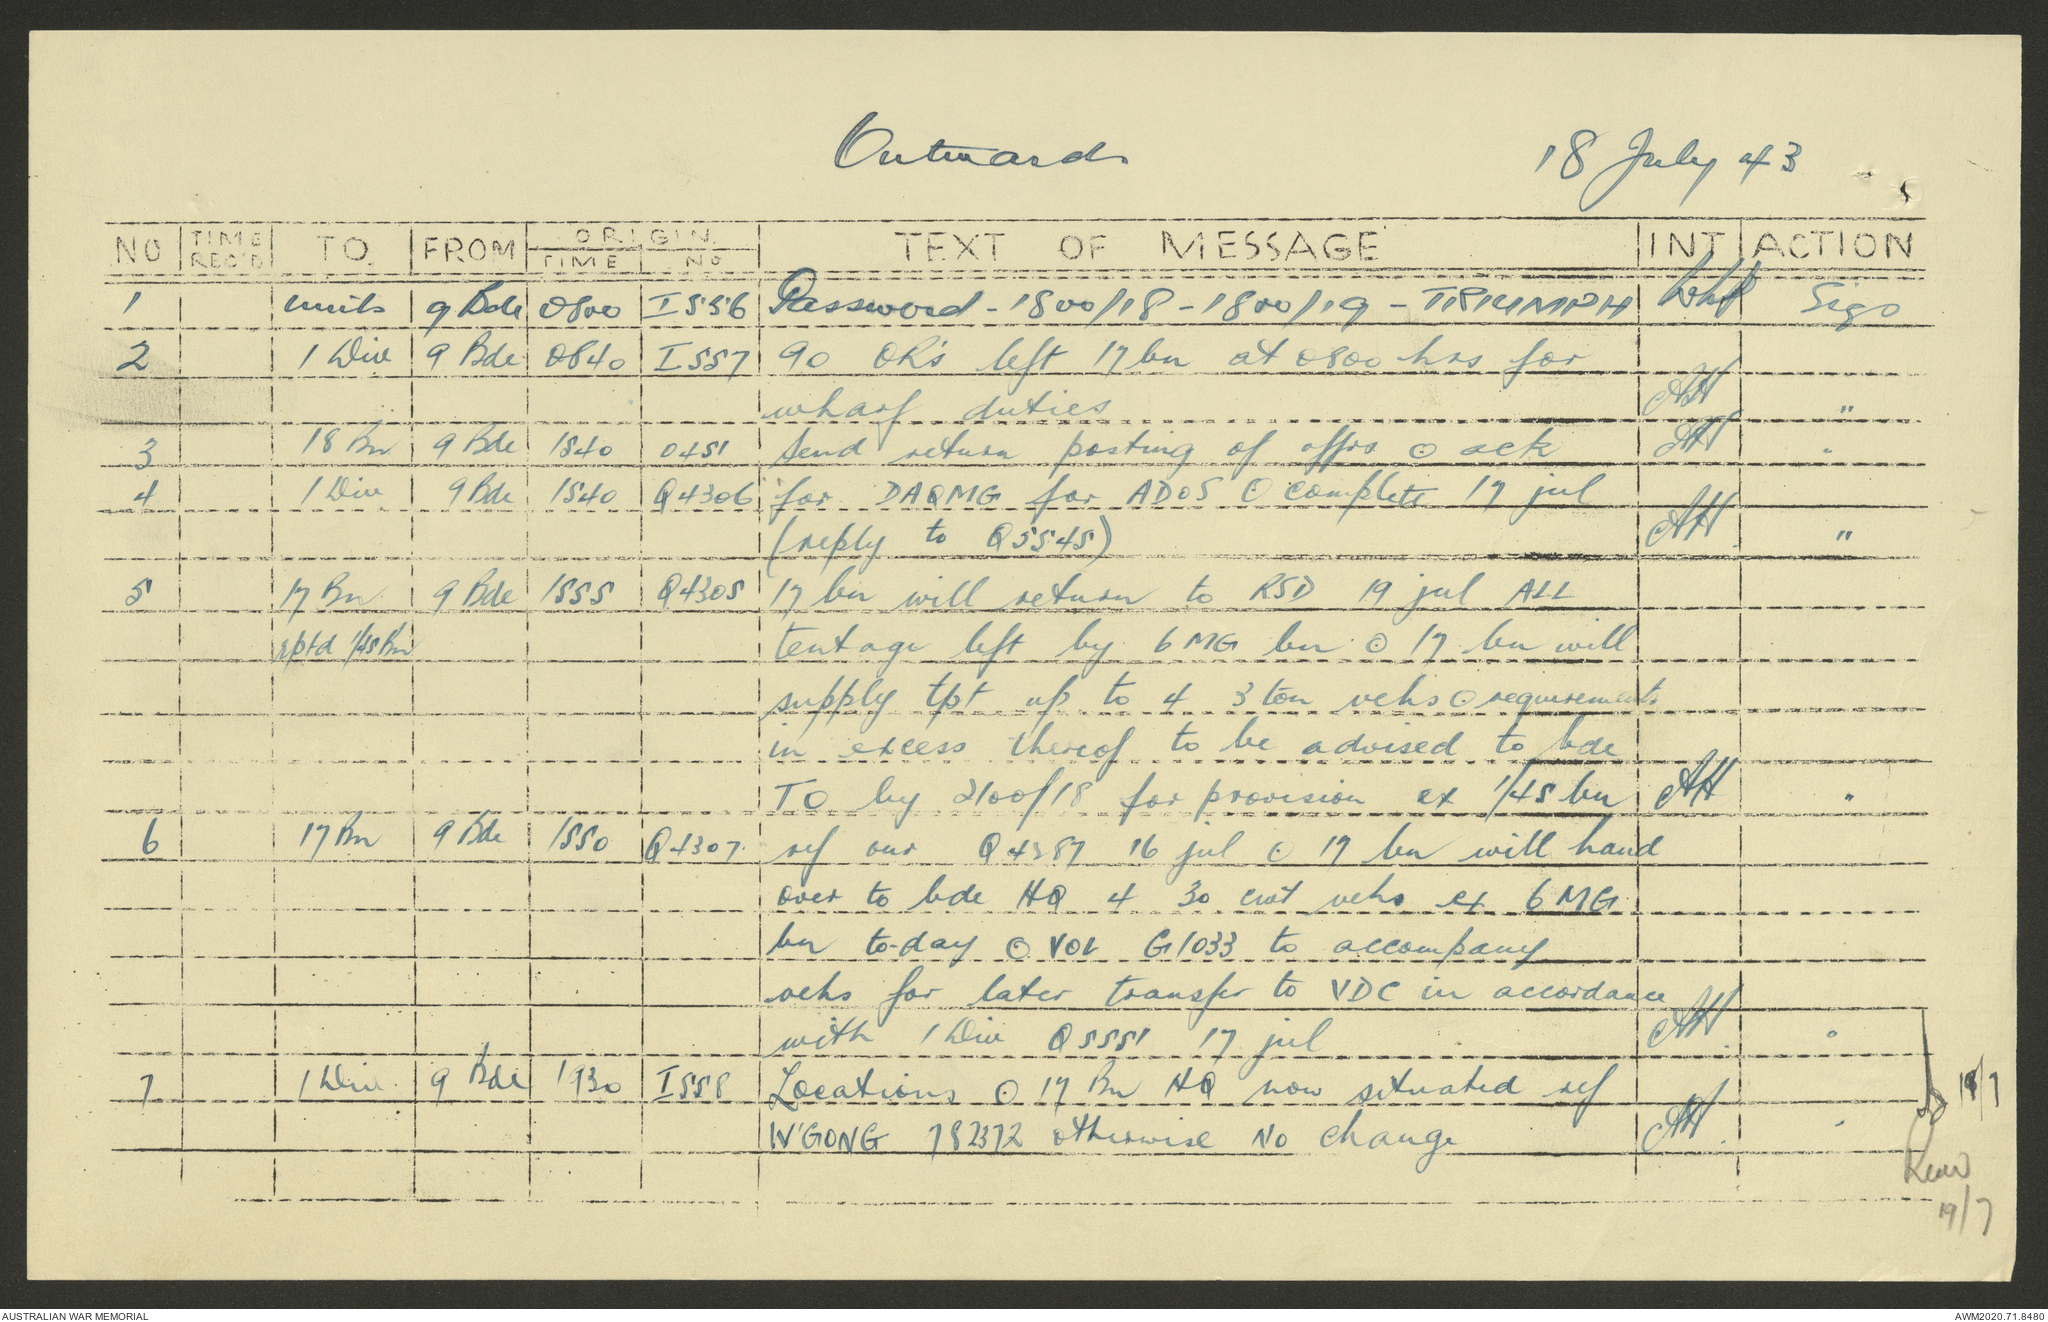 Outwards
18 July 43
NO TIME REC'D TO FROM ORIGIN TIME NO TEXT OF MESSAGE INT ACTION
1 units 9 Bde 0800 I556 Password - 1800/18 - 1800/19 - TRIUMPH Sigs
2 1 Div 9 Bde 0840 I557 90 OR's left 17 bn at 0800 hrs for
wharf duties AH "
3 18 Bn 9 Bde 1540 0451 Send return posting of offrs ⊙ ack AH "
4 1 Div 9 Bde 1540 Q4306 for DAQMG for ADOS ⊙ complete 17 jul
(reply to Q5545) AH "
5 17 Bn 9 Bde 1555 Q4305 17 bn will return to RSD 19 jul ALL
rptd 1/45 Bn tentage left by 6 MG bn ⊙ 17 bn will
supply tpt up to 4 3 ton vehs ⊙ requirements
in excess thereof to be advised to bde
TO by 2100/18 for provision ex 1/45 bn AH "
6 17 Bn 9 Bde 1550 Q4307 ref our Q4287 16 jul ⊙ 17 bn will hand
over to bde HQ 4 30 cwt vehs ex 6 MG
bn to-day ⊙ VOL G1033 to accompany
vehs for later transfer to VDC in accordance
with 1 Div Q5551 17 jul AH "
7 1 Div 9 Bde 1930 I558 Locations ⊙ 17 Bn HQ now situated ref
W'GONG 782372 otherwise NO change AH "
19/7
19/7
AUSTRALIAN WAR MEMORIAL
AWM2020.71.8480